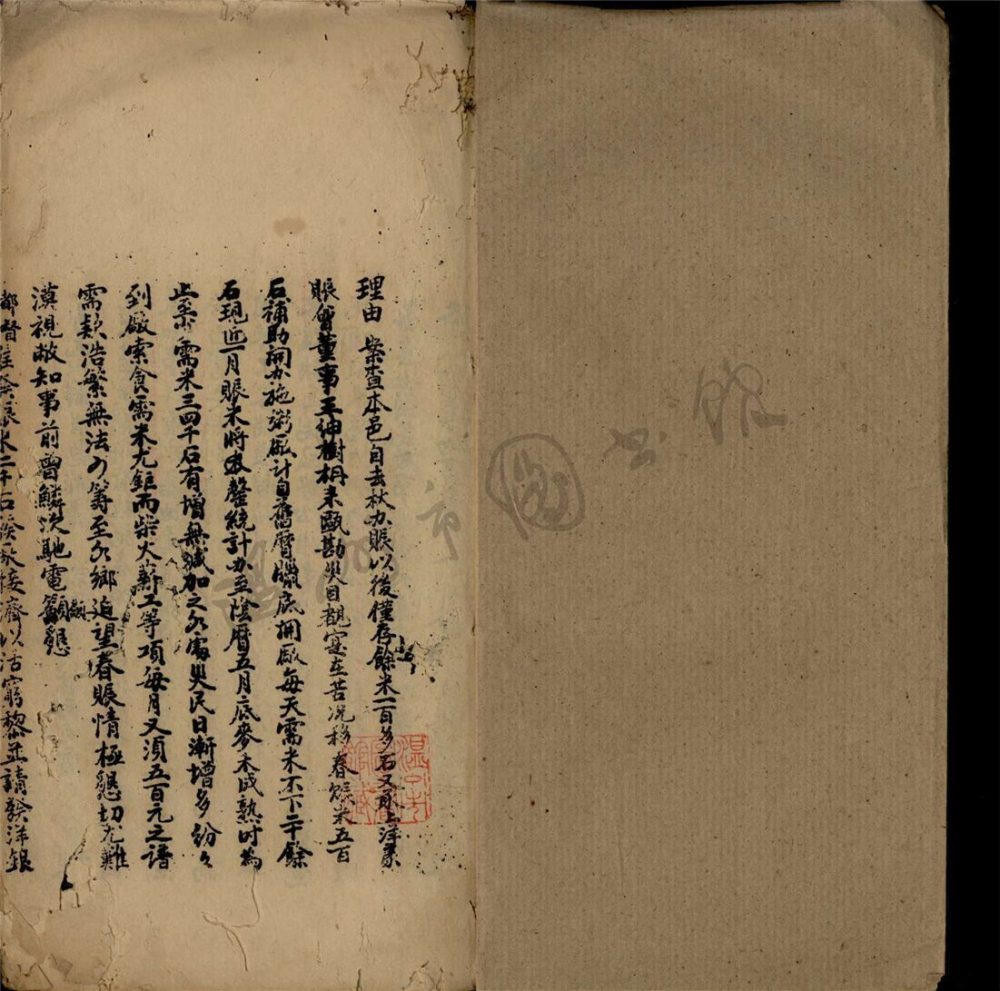 理由 案查本邑自去秋办賑以後僅存餘米一百多石又上洋義
賑會董事王紳樹枬來甌勘災目覩寔在苦況移春賑米五百
石補助開办施粥厰計自舊曆臘底開厰每天需米不下二十餘
石現近一月賑米將次罄統計办至陰曆五月底麥禾成熟时為
止需米三四千石有增無減加之各處災民日漸增多紛々
到厰索食需米尤鉅而柴火薪工等項每月又須五百元之譜
需款浩繁無法可籌至各鄉迫望春賑情極懇切尤難
漠視敝知事前曾鱗次馳電籲懇
都督准發賑米二千石接濟以活窮黎並請發洋銀
溫州市圖書館